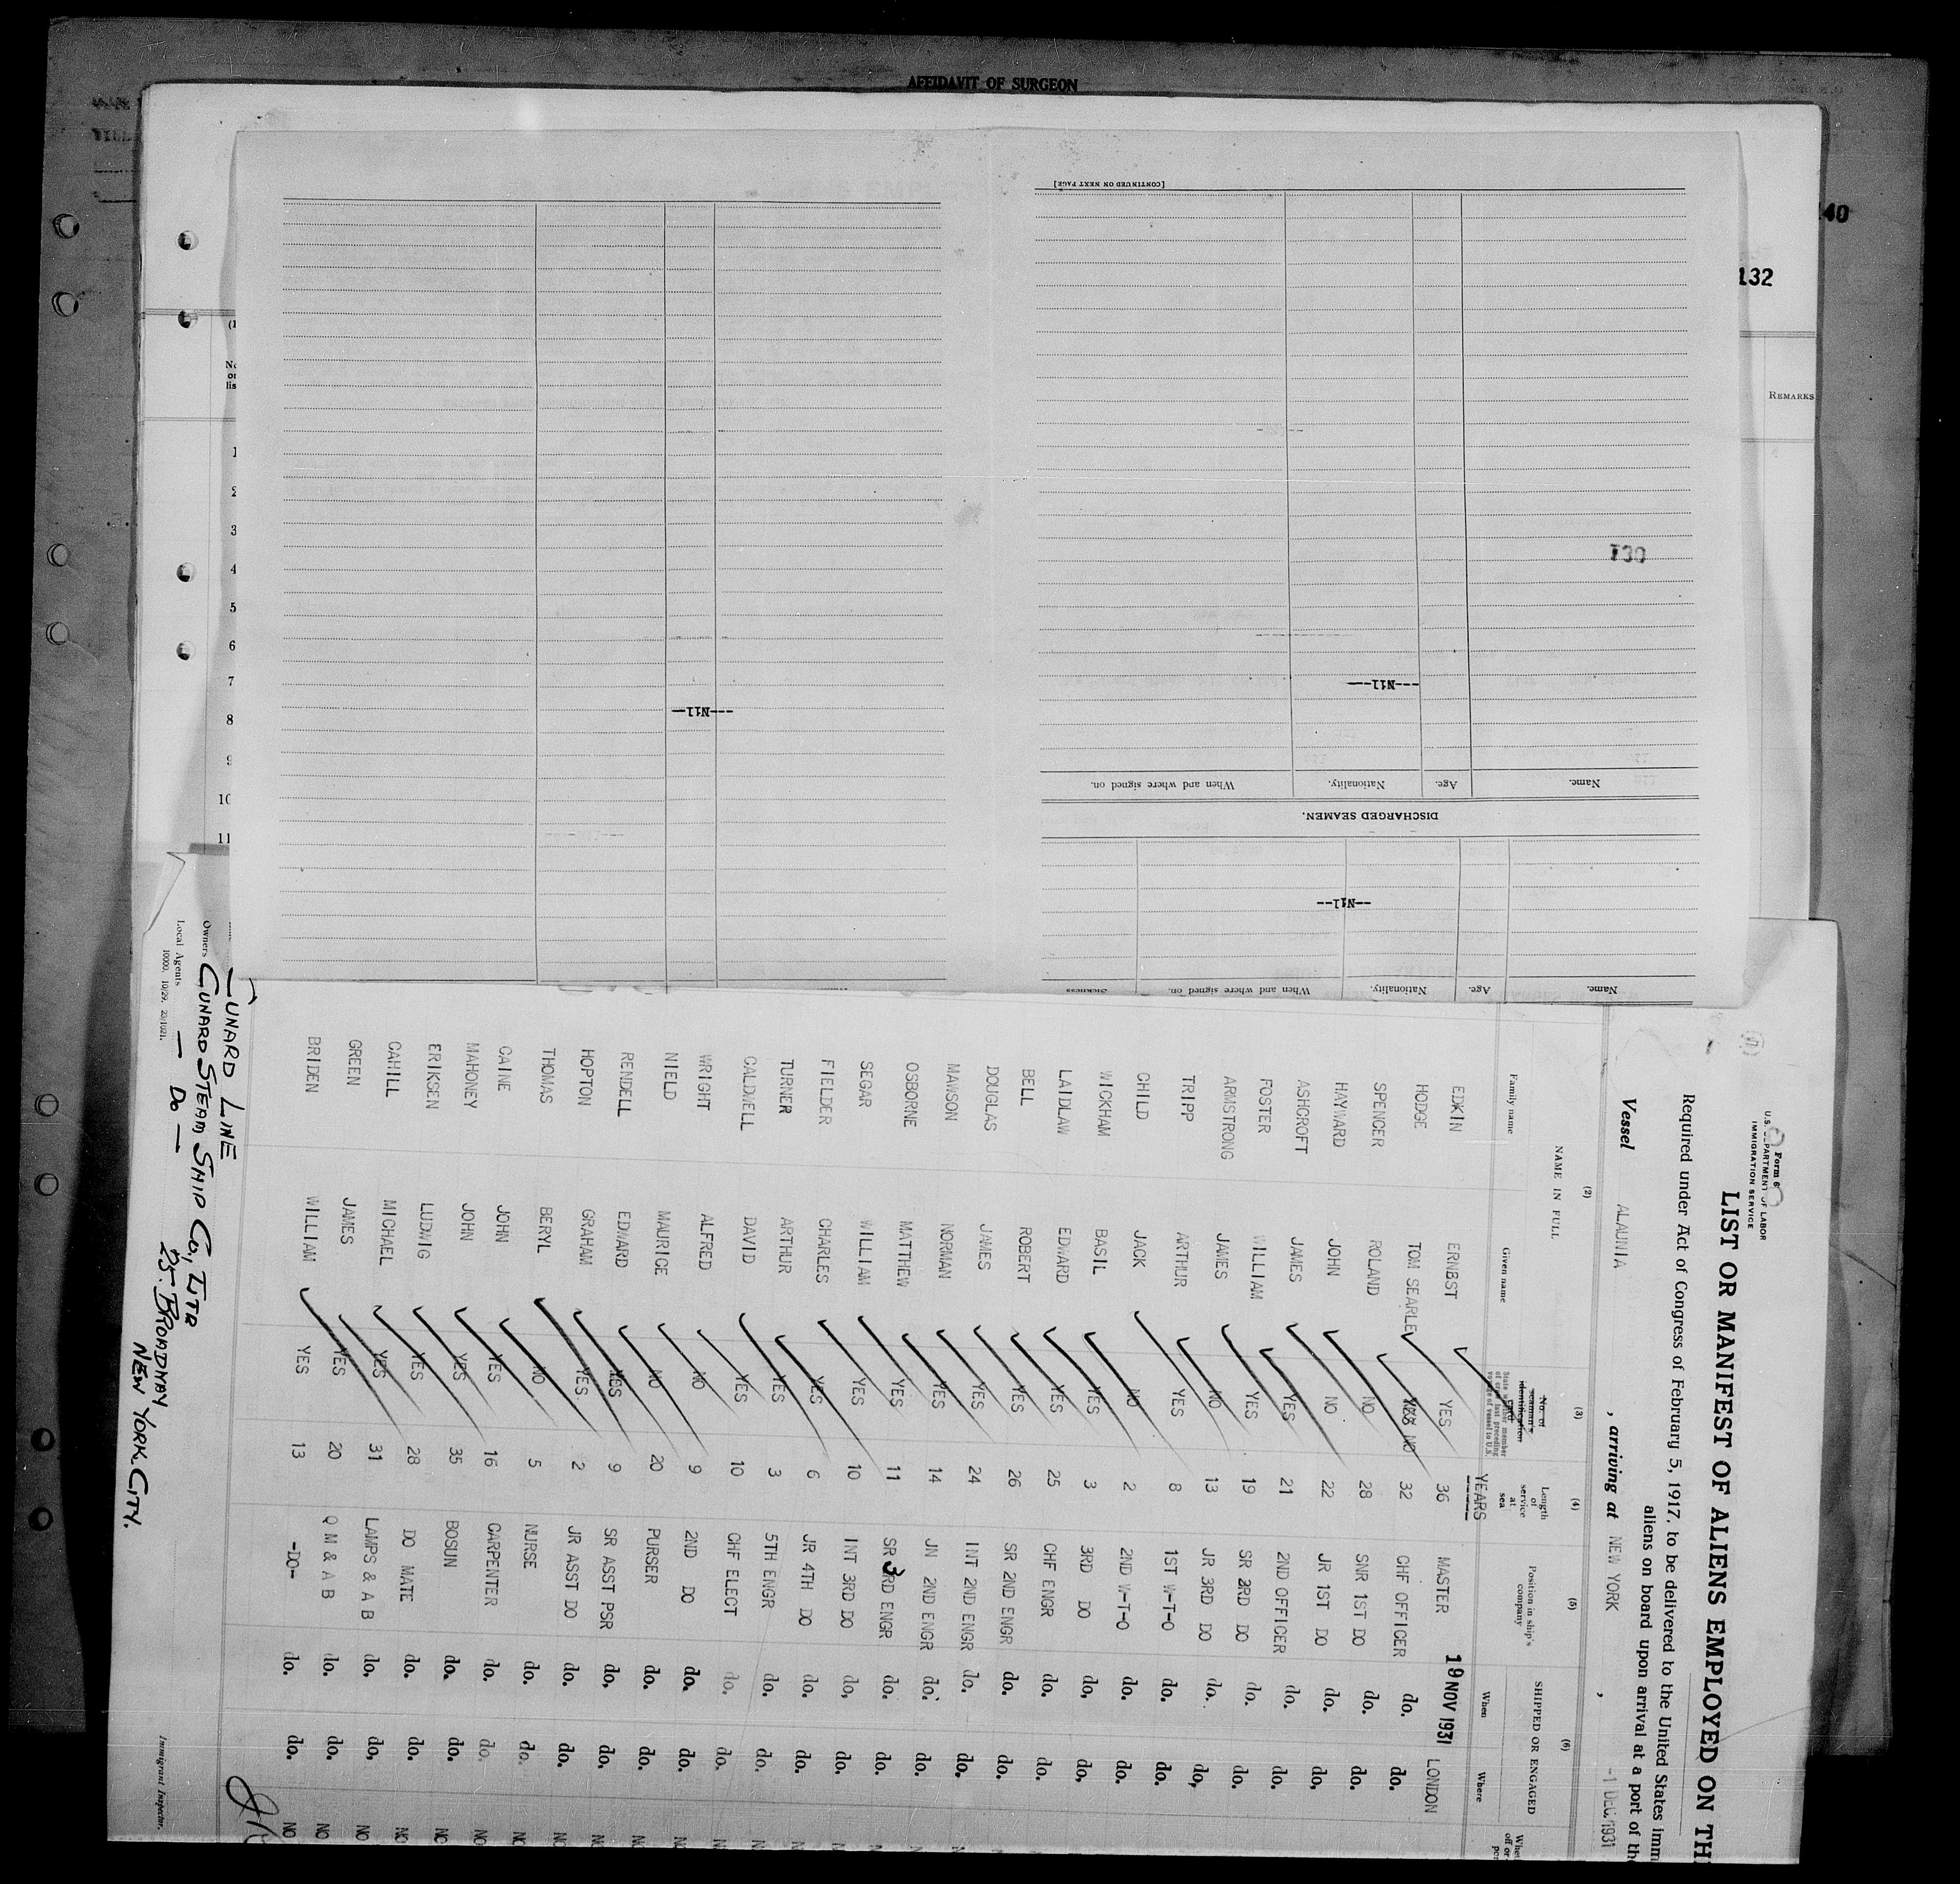 AFFIDAVIT OF SURGEON
40
132
REMARKS
1
2
3
4
5
6
7
8
9
10
11
[CONTINUED ON NEXT PAGE]
130
---Nil--
---Nil--
Name. Age. Nationality. When and where signed on.
DISCHARGED SEAMEN.
--Nil--
Name. Age. Nationality. When and where signed on. Sickness
Form 6
U.S. DEPARTMENT OF LABOR
IMMIGRATION SERVICE
LIST OR MANIFEST OF ALIENS EMPLOYED ON TH
Required under Act of Congress of February 5, 1917, to be delivered to the United States imm
aliens on board upon arrival at a port of th
Vessel ALAUNIA , arriving at NEW YORK , -1 DEC. 1931
(2) (3) (4) (5) (6)
NAME IN FULL
Family name Given name
No. of seaman's identification card
State whether member of crew last preceding voyage of vessel to U.S.
Length of service at sea
Position in ship's company
SHIPPED OR ENGAGED
When Where
YEARS
EDKIN ERNBST YES 36 MASTER 19 NOV 1931 LONDON
HODGE TOM SEARLE YES NO 32 CHF OFFICER do. do.
SPENCER ROLAND NO 28 SNR 1ST DO do. do.
HAYWARD JOHN NO 22 JR 1ST DO do. do,
ASHCROFT JAMES YES 21 2ND OFFICER do. do.
FOSTER WILLIAM YES 19 SR 3RD DO do. do.
ARMSTRONG JAMES NO 13 JR 3RD DO do. do,
TRIPP ARTHUR YES 8 1ST W-T-O do. do.
CHILD JACK NO 2 2ND W-T-O do. do.
WICKHAM BASIL YES 3 3RD DO do, do,
LAIDLAW EDWARD YES 25 CHF ENGR do. do.
BELL ROBERT YES 26 SR 2ND ENGR do. do.
DOUGLAS JAMES YES 24 INT 2ND ENGR do. do.
MAWSON NORMAN YES 14 JN 2ND ENGR do. do.
OSBORNE MATTHEW YES 11 SR 3RD ENGR do. do.
SEGAR WILLIAM YES 10 INT 3RD DO do, do.
FIELDER CHARLES YES 6 JR 4TH DO do. do.
TURNER ARTHUR YES 3 5TH ENGR do. do.
CALDWELL DAVID YES 10 CHF ELECT do. do.
WRIGHT ALFRED NO 9 2ND DO do. do.
NIELD MAURICE NO 20 PURSER do. do.
RENDELL EDWARD 9 SR ASST PSR do, do.
HOPTON GRAHAM YES 2 JR ASST DO do. do.
THOMAS BERYL NO 5 NURSE do. do.
CAINE JOHN YES 16 CARPENTER do. do.
MAHONEY JOHN YES 35 BOSUN do. do.
ERIKSEN LUDWIG YES 28 DO MATE do. do.
CAHILL MICHAEL YES 31 LAMPS & A B do, do,
GREEN JAMES YES 20 Q M & A B do. do. NO
BRIDEN WILLIAM YES 13 -DO- do. do. NO
CUNARD LINE
Owners CUNARD STEAM SHIP Co, LTD
Local Agents — Do — 25. BROADWAY
NEW YORK. CITY.
Immigrant Inspector.